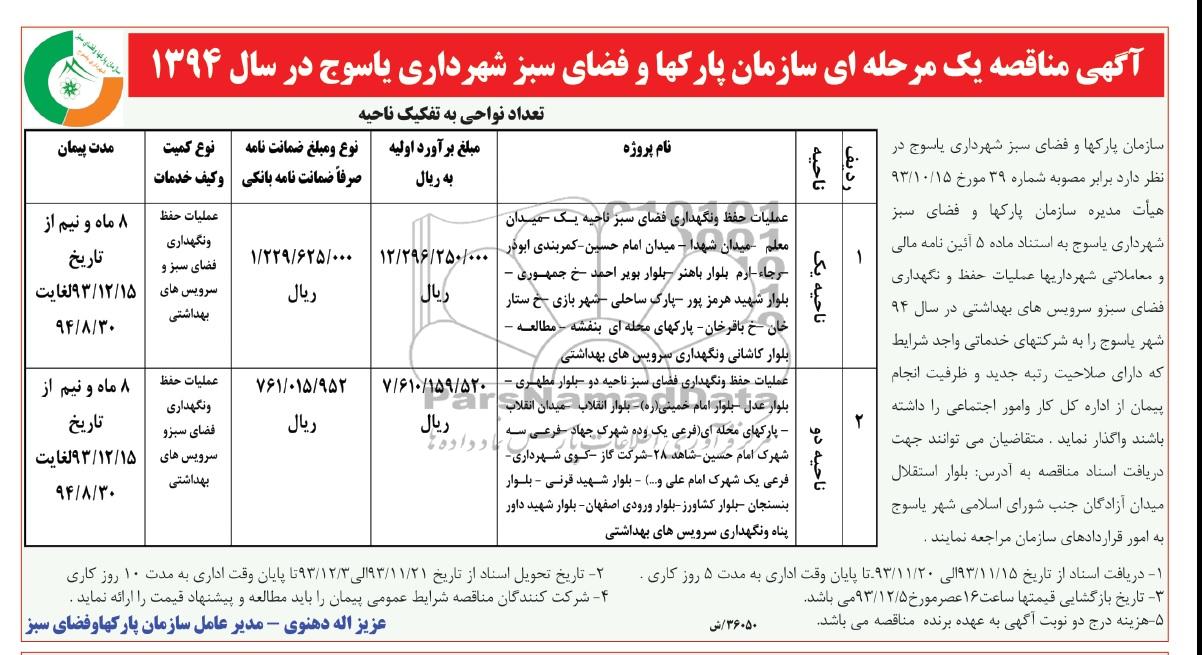 آگهی مناقصه یک مرحله ای سازمان پارکها و فضای سبز شهرداری یاسوج در سال ۱۳۹۴
سازمان پارکها و فضای سبز
شهرداری یاسوج
تعداد نواحی به تفکیک ناحیه
سازمان پارکها و فضای سبز شهرداری یاسوج در
نظر دارد برابر مصوبه شماره ۳۹ مورخ ۹۳/۱۰/۱۵
هیأت مدیره سازمان پارکها و فضای سبز
شهرداری یاسوج به استناد ماده ۵ آئین نامه مالی
و معاملاتی شهرداریها عملیات حفظ و نگهداری
فضای سبزو سرویس های بهداشتی در سال ۹۴
شهر یاسوج را به شرکتهای خدماتی واجد شرایط
که دارای صلاحیت رتبه جدید و ظرفیت انجام
پیمان از اداره کل کار وامور اجتماعی را داشته
باشند واگذار نماید . متقاضیان می توانند جهت
دریافت اسناد مناقصه به آدرس: بلوار استقلال
میدان آزادگان جنب شورای اسلامی شهر یاسوج
به امور قراردادهای سازمان مراجعه نمایند .
ردیف
ناحیه
نام پروژه
مبلغ برآورد اولیه
به ریال
نوع ومبلغ ضمانت نامه
صرفاً ضمانت نامه بانکی
نوع کمیت
وکیف خدمات
مدت پیمان
۱
ناحیه یک
عملیات حفظ ونگهداری فضای سبز ناحیه یک –میدان
معلم -میدان شهدا – میدان امام حسین-کمربندی ابوذر
–رجاء-ارم بلوار باهنر –بلوار بویر احمد –خ جمهوری –
بلوار شهید هرمز پور –پارک ساحلی –شهر بازی –خ ستار
خان –خ باقرخان- پارکهای محله ای بنفشه – مطالعه –
بلوار کاشانی ونگهداری سرویس های بهداشتی
۱۲/۲۹۶/۲۵۰/۰۰۰
ریال
۱/۲۲۹/۶۲۵/۰۰۰
ریال
عملیات حفظ
ونگهداری
فضای سبز و
سرویس های
بهداشتی
۸ ماه و نیم از
تاریخ
۹۳/۱۲/۱۵لغایت
۹۴/۸/۳۰
۲
ناحیه دو
عملیات حفظ ونگهداری فضای سبز ناحیه دو –بلوار مطهری –
بلوار عدل –بلوار امام خمینی(ره)- بلوار انقلاب –میدان انقلاب
– پارکهای محله ای(فرعی یک وده شهرک جهاد –فرعی سه
شهرک امام حسین-شاهد ۲۸-شرکت گاز –کوی شهرداری-
فرعی یک شهرک امام علی و...) – بلوار شهید قرنی – بلوار
بنسنجان –بلوار کشاورز–بلوار ورودی اصفهان- بلوار شهید داور
پناه ونگهداری سرویس های بهداشتی
۷/۶۱۰/۱۵۹/۵۲۰
ریال
۷۶۱/۰۱۵/۹۵۲
ریال
عملیات حفظ
ونگهداری
فضای سبزو
سرویس های
بهداشتی
۸ ماه و نیم از
تاریخ
۹۳/۱۲/۱۵لغایت
۹۴/۸/۳۰
ParsNamadData
۱- دریافت اسناد از تاریخ ۹۳/۱۱/۱۵الی ۹۳/۱۱/۲۰.تا پایان وقت اداری به مدت ۵ روز کاری .
۲- تاریخ تحویل اسناد از تاریخ ۹۳/۱۱/۲۱الی۹۳/۱۲/۳تا پایان وقت اداری به مدت ۱۰ روز کاری
۳- تاریخ بازگشایی قیمتها ساعت۱۶عصرمورخ۹۳/۱۲/۵می باشد.
۴- شرکت کنندگان مناقصه شرایط عمومی پیمان را باید مطالعه و پیشنهاد قیمت را ارائه نماید .
۵-هزینه درج دو نوبت آگهی به عهده برنده مناقصه می باشد.
۳۶۰۵۰/ش
عزیز اله دهنوی – مدیر عامل سازمان پارکهاوفضای سبز